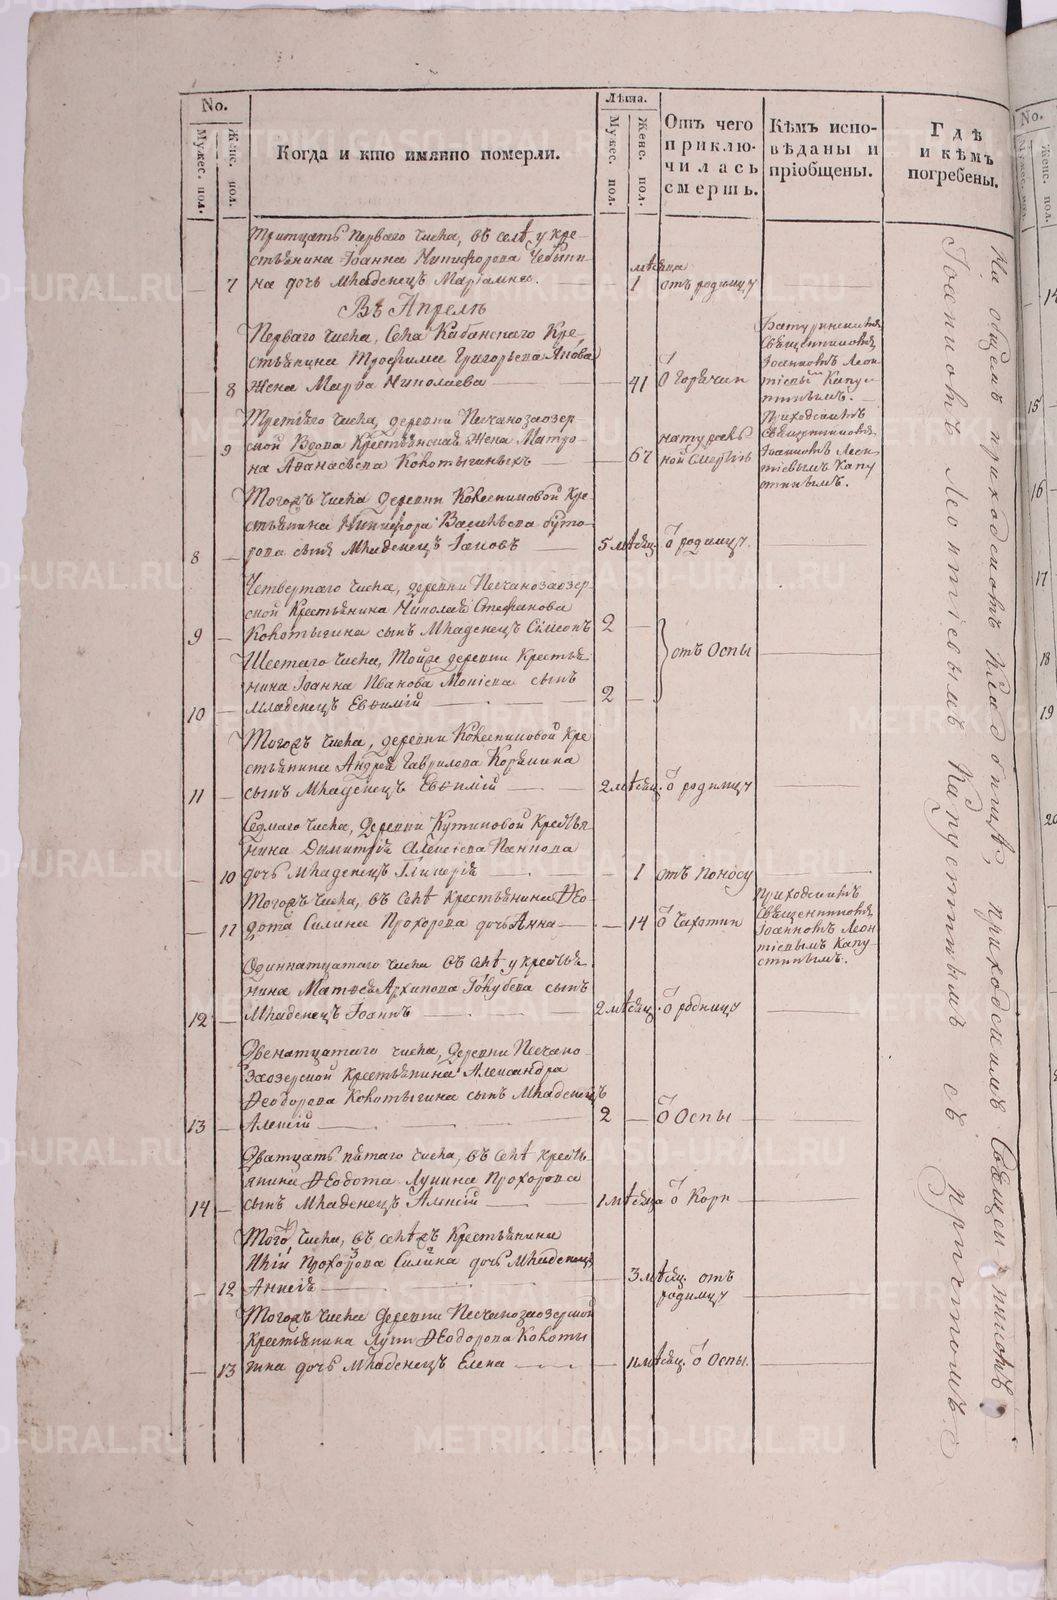 No.
Мужес. пол.
Женс. пол.
Когда и кто имянно померли.
Лѣта.
Мужес. пол.
Женс. пол.
Отъ чего
приклю-
чилась
смерть.
Кѣмъ испо-
вѣданы и
пріобщены.
Гдѣ
и кѣмъ
погребены.
Тритцать перваго числа, въ селѣ у кре-
стьянина Іоанна Никифорова
7 на дочь младенецъ
мѣсяца
1 отъ родимцу
Въ Апрелѣ
Перваго числа, села Кабанскаго Кре-
стьянина Трофима Григорьева
8 жена Марфа Николаева
41 ѿ горячки
Священникомъ
Іоанномъ Леон-
тіевымъ Капу-
стинымъ.
Третьяго числа, деревни Песчанозаозер-
ской Вдова Крестьянская жена Матро-
9 на Афанасьева Кокотыгиныхъ
67 натураль
ной смертію
Приходскимъ
Священникомъ
Іоанномъ Леон-
тіевымъ Капу
стинымъ.
Тогожъ числа деревни Кокшиновой Кре-
стьянина Никифора Васильева Буто-
8 рова сынъ Младенецъ Іаковъ
5 мѣсяц. ѿ родимч.
Четвертаго числа, деревни Песчанозаозер-
ской Крестьянина Николая Стефанова
9 Кокотыгина сынъ Младенецъ Сімеонъ
2
отъ Оспы
Шестаго числа, Тойже деревни Крестья
нина Іоанна Иванова сынъ
10 младенецъ Евѳимій
2
Тогожъ числа, деревни Кокшиновой Кре
стьянина Андрея Гаврилова Корякина
11 сынъ Младенецъ Евѳимій
2 мѣсяц. ѿ родимцу
Седмаго числа, деревни Кутиковой Крестья
нина Димитрія Алексіева Панкова
10 дочь младенецъ Гликерія
1 отъ Поносу
Тогожъ числа, въ селѣ Крестьянина Ѳео-
11 дота Силина Прохорова дочь Анна
14 ѿ Чахотки
Приходскимъ
Священникомъ
Іоанномъ Леон
тіевымъ Капу-
стинымъ.
Одиннатцатаго числа въ селѣ у крестья
нина Матѳея Архипова Голубева сынъ
12 Младенецъ Іоаннъ
2 мѣсяц. ѿ родимцу
Двенатцатаго числа, деревни Песчано-
заозерской Крестьянина Александра
Ѳеодорова Кокотыгина сынъ Младенецъ
13 Алексій
2 ѿ Оспы
Дватцать пятаго числа, въ селѣ крестья
янина Ѳеодота Лукина Прохорова
14 сынъ Младенецъ Алексій
1 мѣсяца ѿ Кори
Того числа, въ селѣ Крестьянина
Прохорова Силина дочь Младенецъ
12
3 мѣсяц. отъ
родимцу
Тогожъ числа деревни Песчанозаозерской
Крестьянина Луки Ѳеодорова Кокоты
13 гина дочь Младенецъ Елена
мѣсяц. ѿ Оспы.
На общемъ приходскомъ кладбищѣ, приходскимъ Священникомъ
Іоанномъ Леонтіевымъ Капустинымъ съ причтомъ
No.
Мужес. пол.
Женс. пол.
14
15
16
17
18
19
20
METRIKI.GASO-URAL.RU